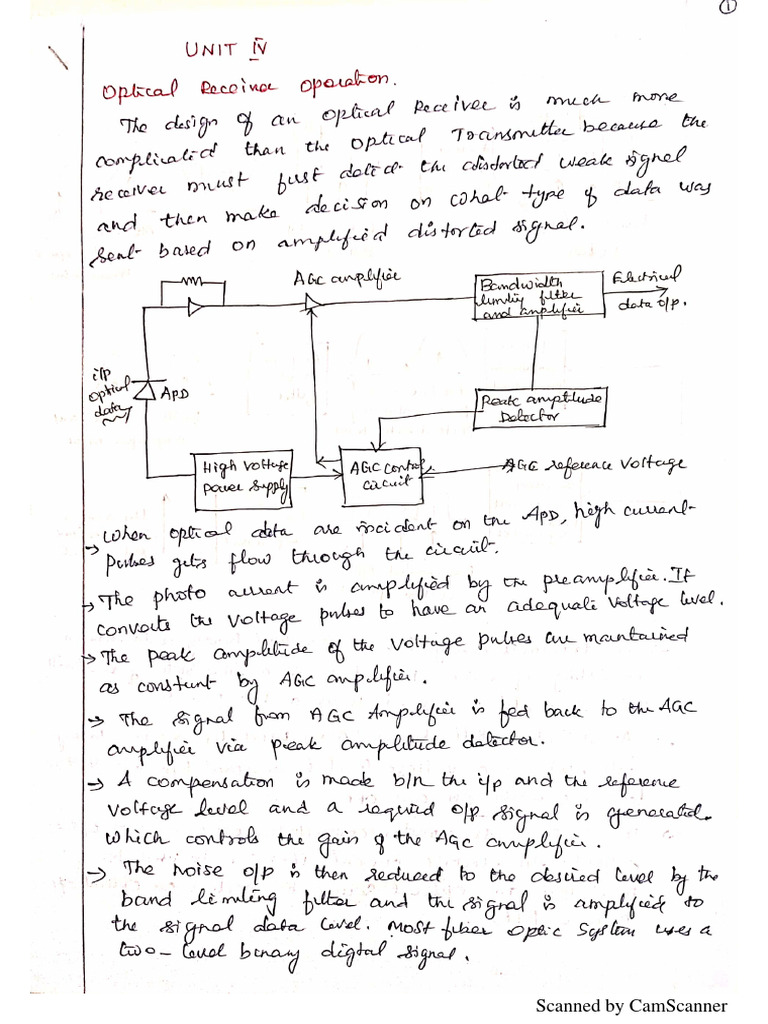 1
UNIT IV
Optical Receiver Operation.
The design of an Optical Receiver is much more
complicated than the Optical Transmitter because the
receiver must first detect the distorted weak signal
and then make decision on what type of data was
sent based on amplified distorted signal.
AGC amplifier
Bandwidth
limiting filter
and amplifier
Electrical
data o/p.
i/p
optical
data
APD
Peak amplitude
Detector
High Voltage
Power Supply
AGC control
circuit
AGC reference Voltage
→ When optical data are incident on the APD, high current
pulses gets flow through the circuit.
→ The photo current is amplified by the preamplifier. It
converts the voltage pulses to have an adequate voltage level.
→ The peak amplitude of the voltage pulses are maintained
as constant by AGC amplifier.
→ The signal from AGC Amplifier is fed back to the AGC
amplifier via peak amplitude detector.
→ A compensation is made b/n the i/p and the reference
voltage level and a required o/p signal is generated.
which controls the gain of the AGC amplifier.
→ The noise o/p is then reduced to the desired level by the
band limiting filter and the signal is amplified to
the signal data level. Most fiber optic system uses a
two-level binary digital signal.
Scanned by CamScanner